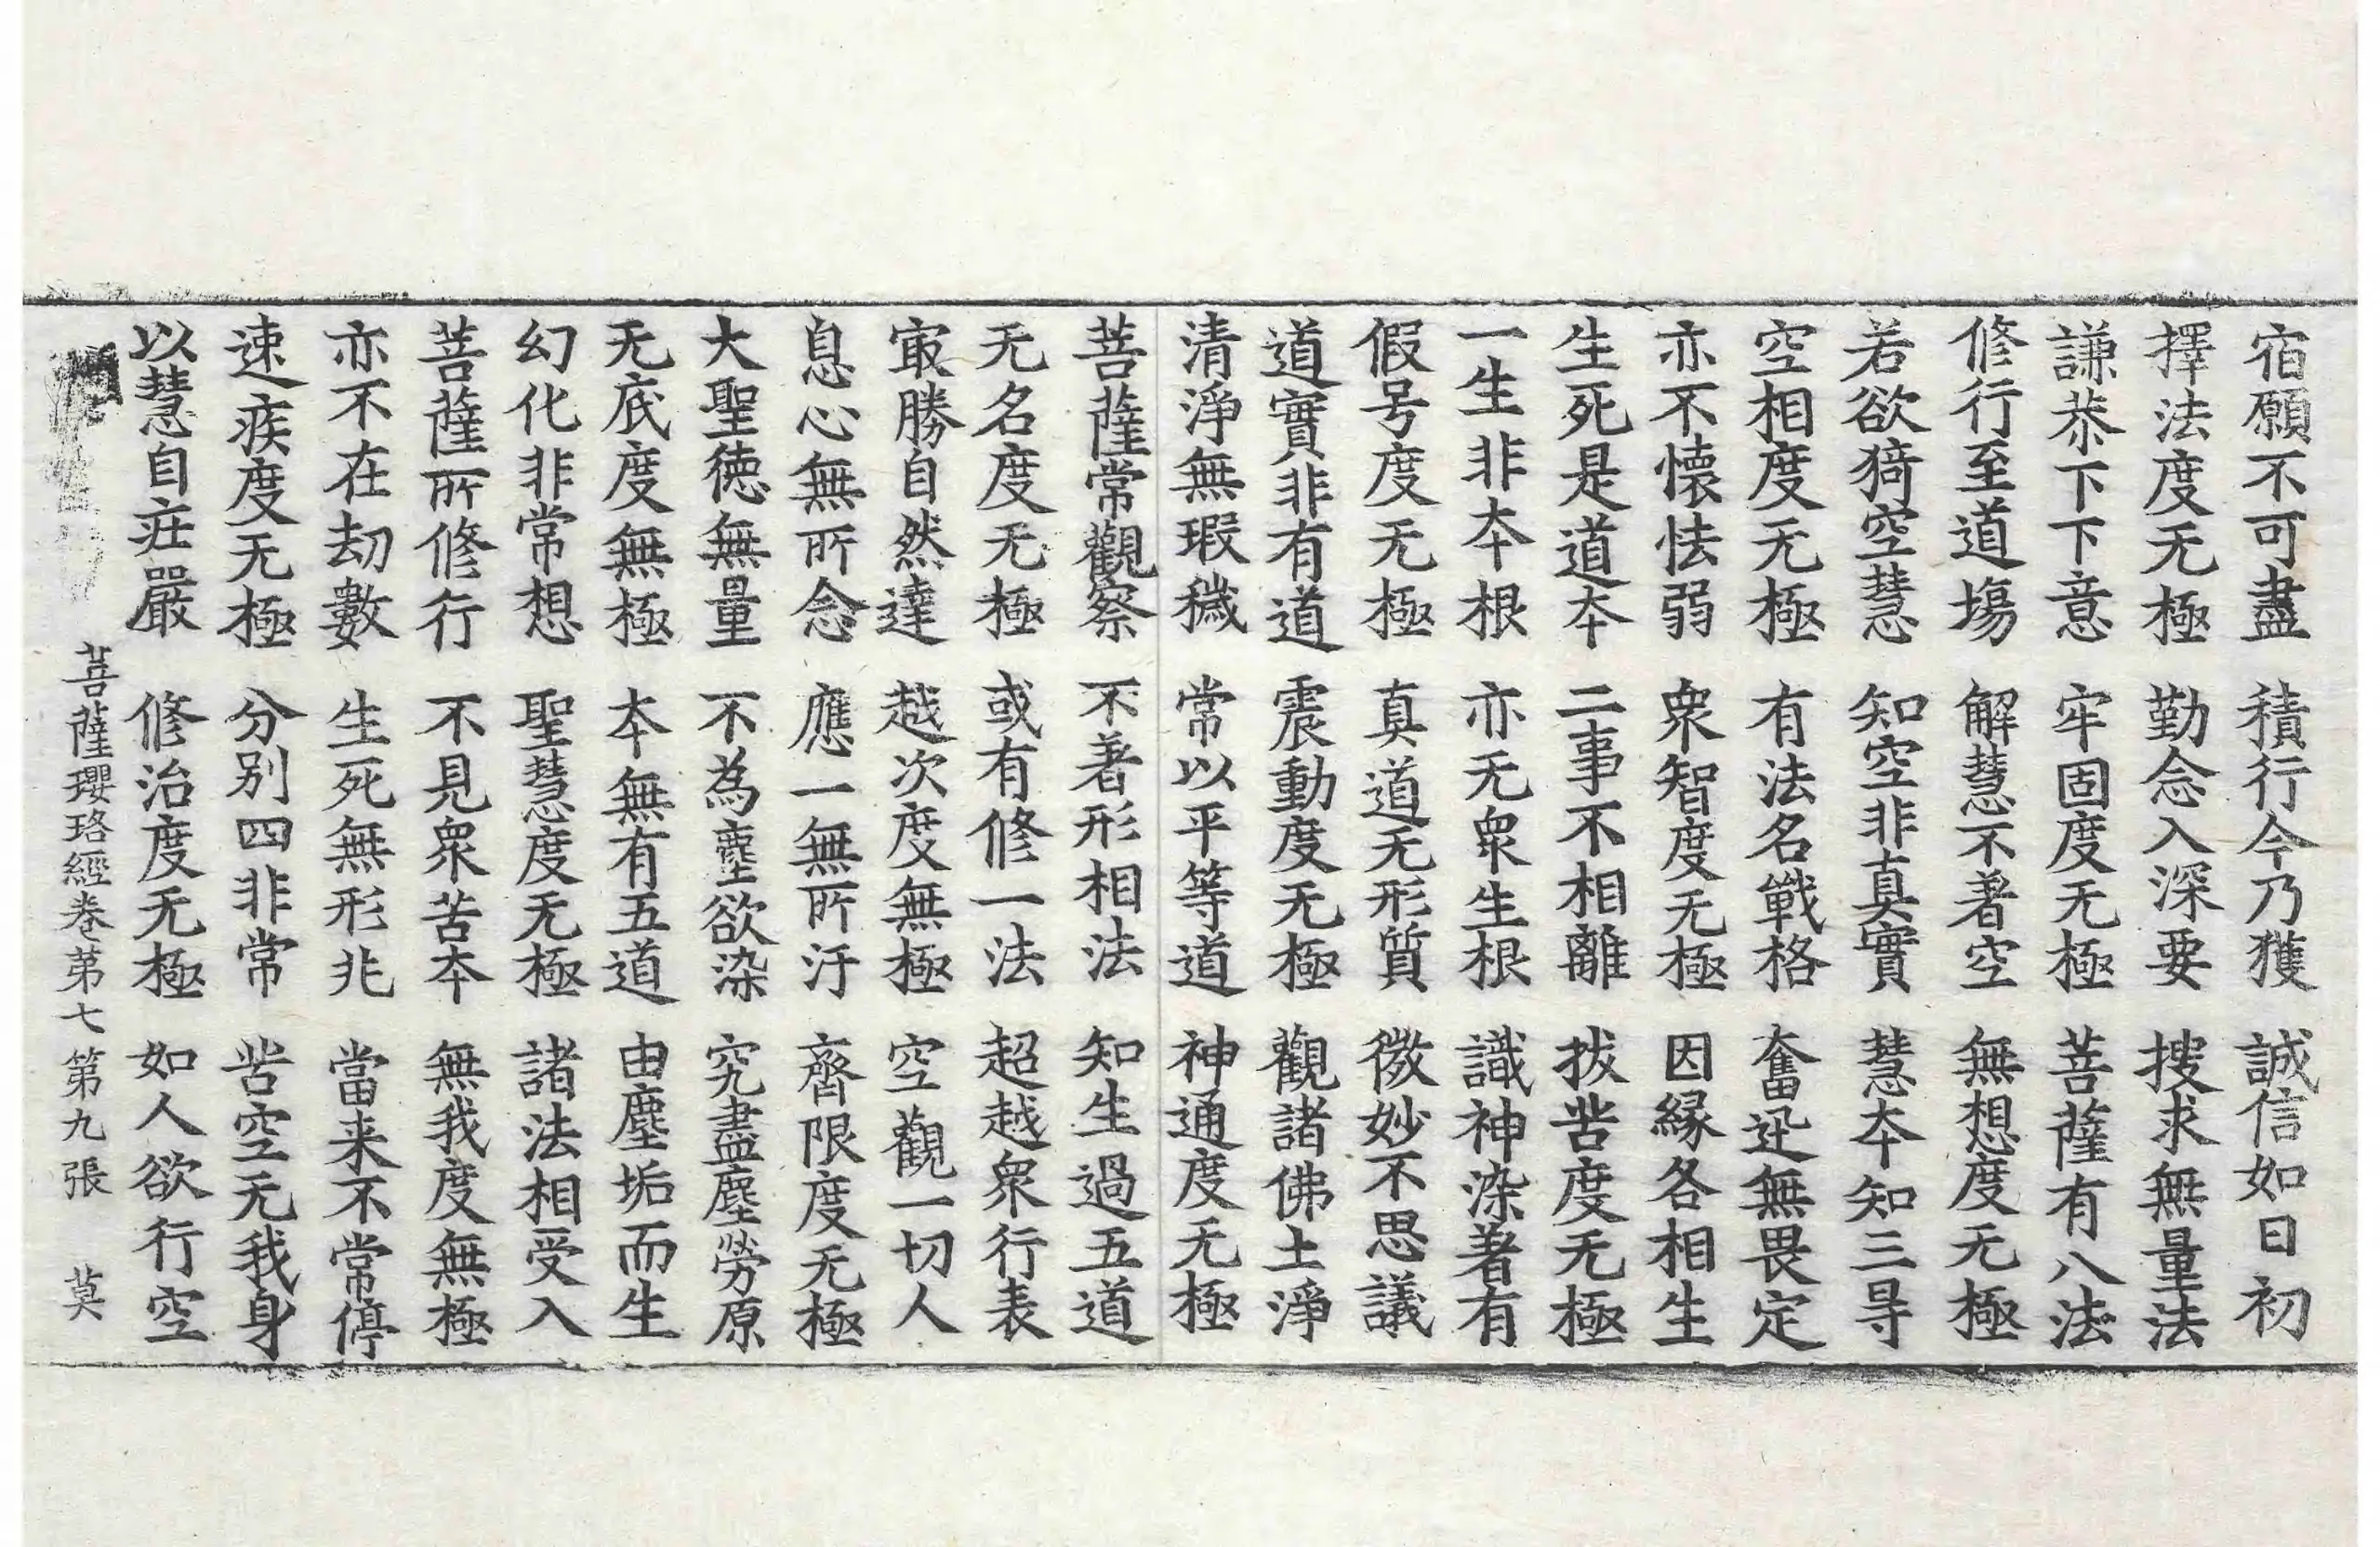 宿願不可盡　積行今乃獲　誠信如日初
擇法度无極　勤念入深要　搜求無量法
謙恭下下意　牢固度无極　菩薩有八法
修行至道塲　解慧不著空　無想度无極
若欲猗空慧　知空非真實　慧夲知三㝵
空相度无極　有法名戰格　奮迅無畏定
亦不懷怯弱　衆智度无極　因緣各相生
生死是道夲　二事不相離　拔苦度无極
一生非夲根　亦无衆生根　識神染著有
假号度无極　真道无形質　微妙不思議
道實非有道　震動度无極　觀諸佛土淨
清淨無瑕穢　常以平等道　神通度无極
菩薩常觀察　不著形相法　知生過五道
无名度无極　或有修一法　超越衆行表
㝡勝自然達　越次度無極　空觀一切人
息心無所念　應一無所汙　齊限度无極
大聖德無量　不為塵欲染　究盡塵勞原
无底度無極　夲無有五道　由塵垢而生
幻化非常想　聖慧度无極　諸法相受入
菩薩所修行　不見衆苦夲　無我度無極
亦不在劫數　生死無形兆　當来不常停
速疾度无極　分别四非常　苦空无我身
以慧自莊嚴　修治度无極　如人欲行空
菩薩瓔珞經卷第七　第九張　莫